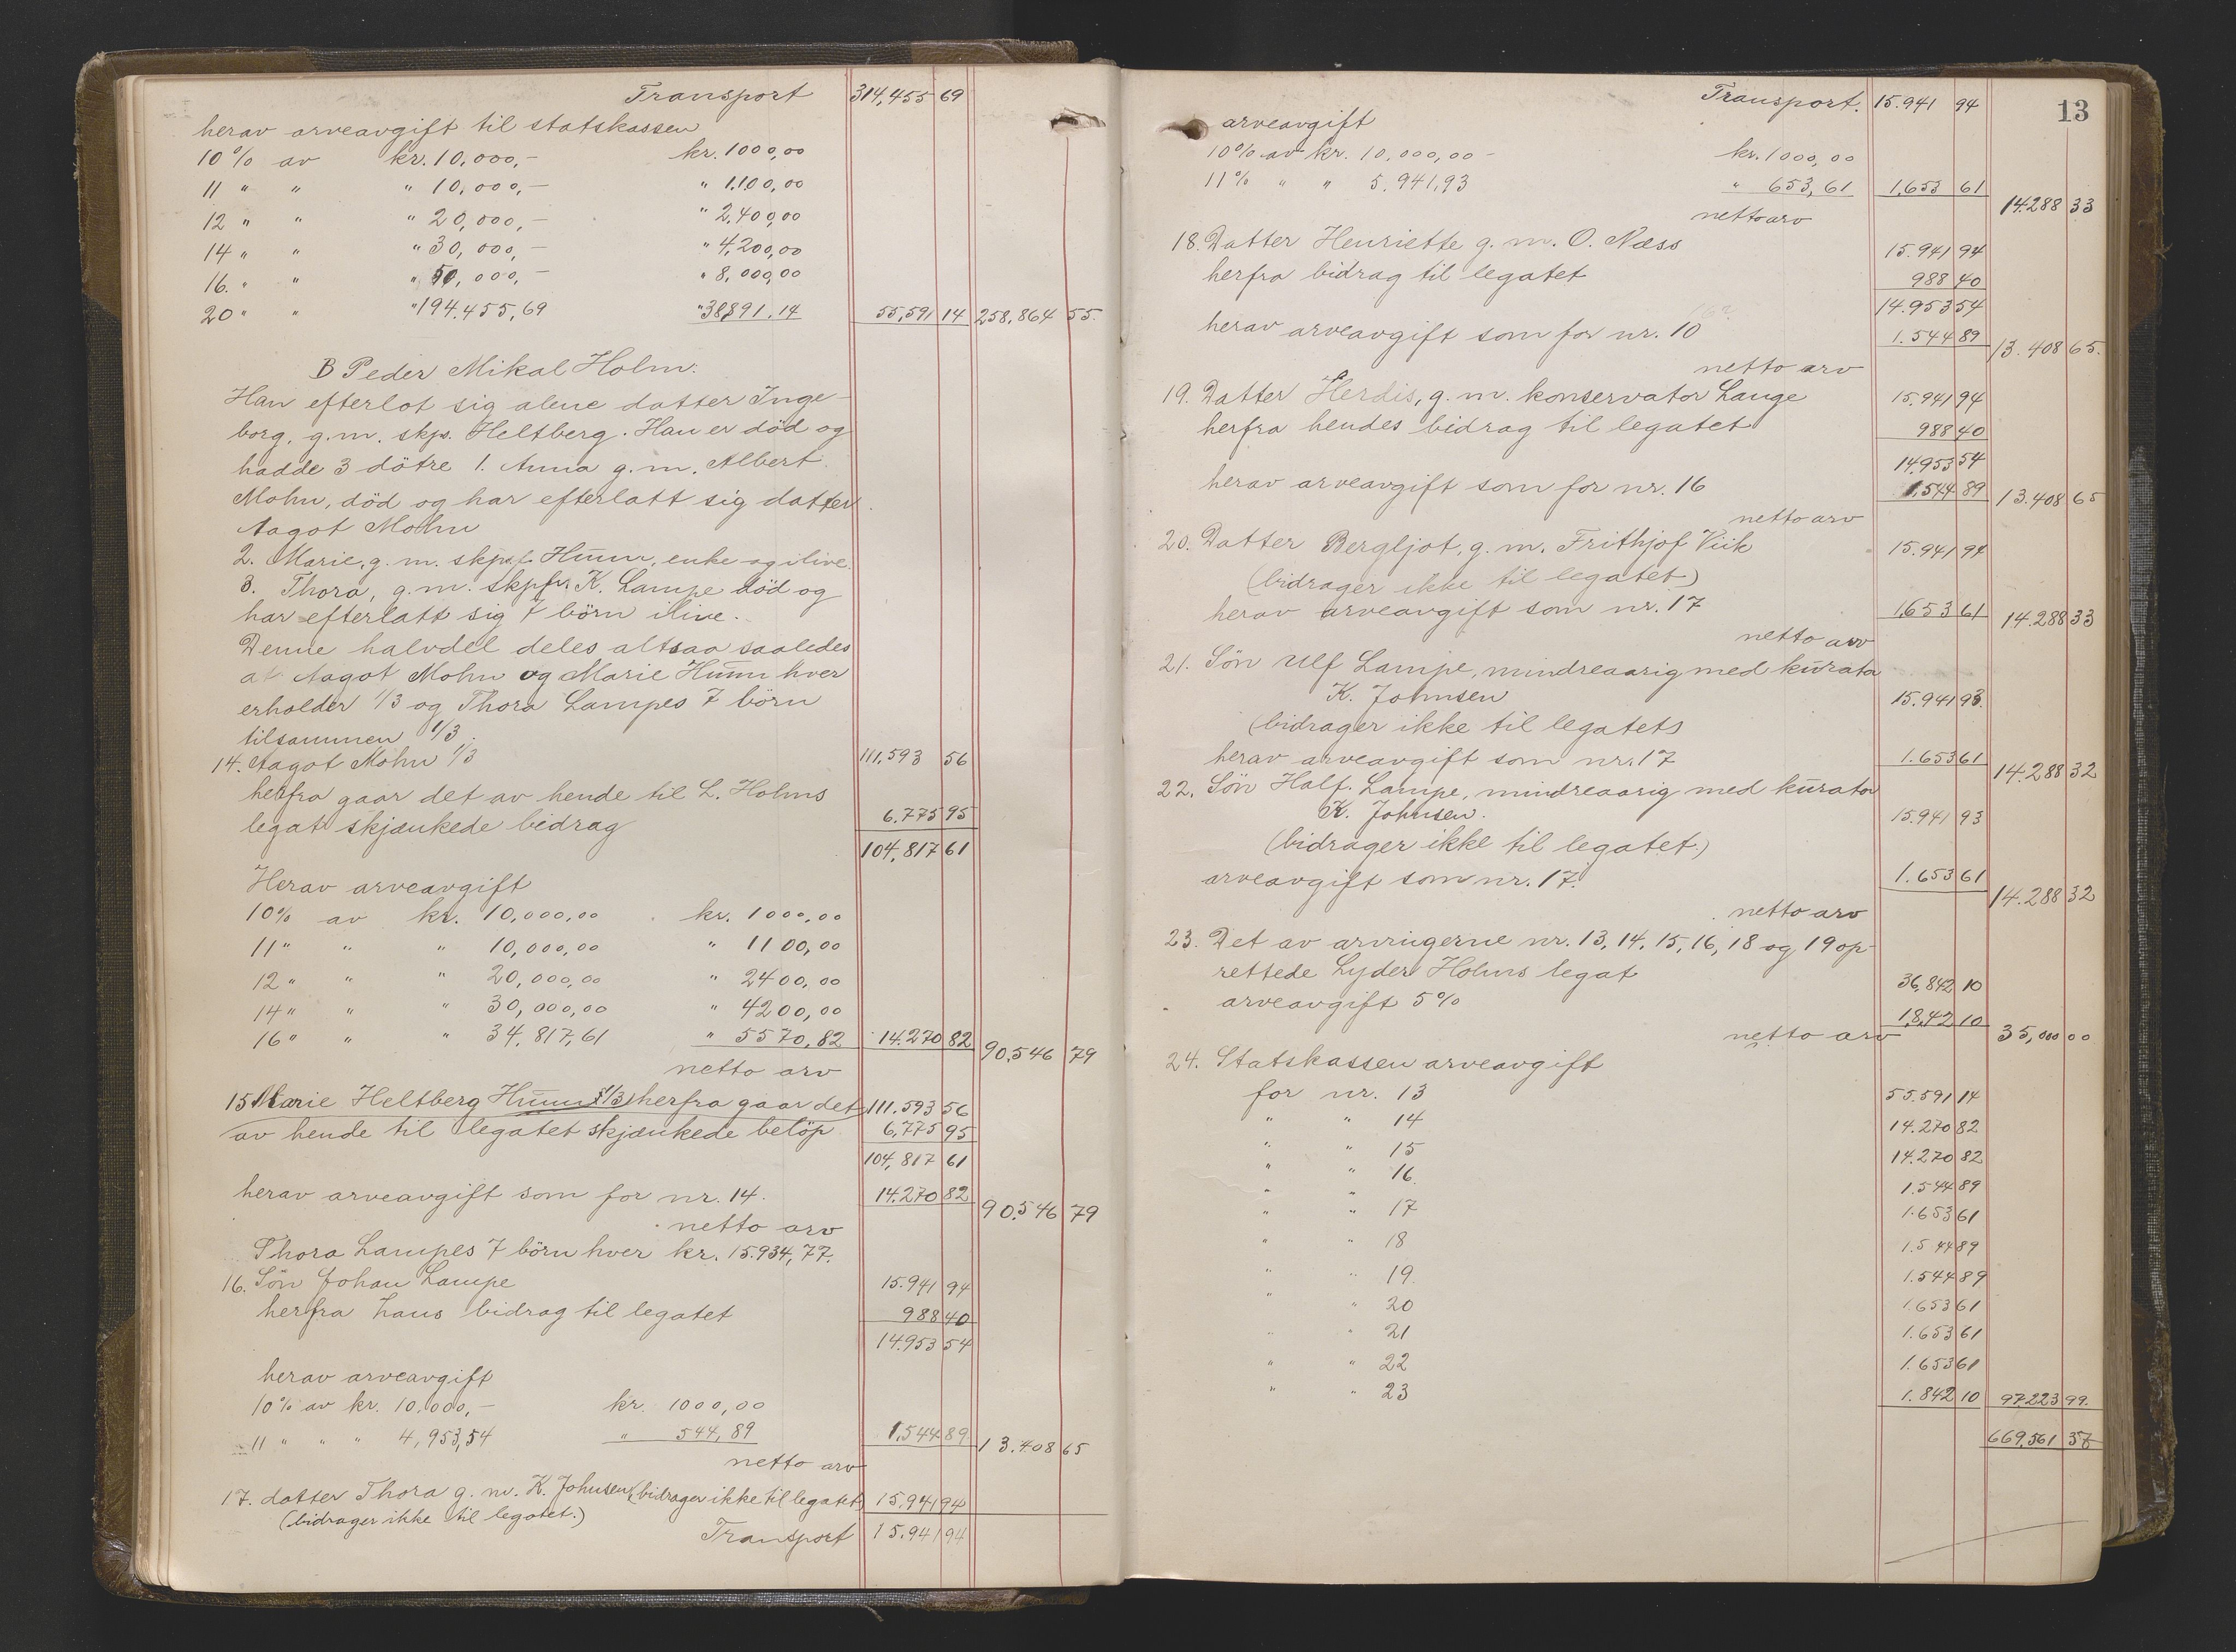 Transport 314,455 69
herav arveavgift til statskassen
10% av kr. 10,000,- kr. 1000,00
11 " " " 10,000,- " 1.100,00
12 " " " 20,000,- " 2,400,00
14 " " " 30,000,- " 4,200,00
16. " " " 50,000,- " 8,000,00
20 " " " 194.455,69 " 38,891.14 55,591 14 258,864 55.
B Peder Mikal Holm:
Han efterlot sig alene datter Inge-
borg, g.m. skps. Heltberg. Han er död og
hadde 3 dötre 1. Anna g.m. Albert
Mohn, död og har efterlatt sig datter
Aagot Mohn
2. Marie, g.m. skpsf. Humm, enke og ilive.
3. Thora, g.m. skpfr. K. Lampe död og
har efterlatt sig 7 börn ilive.
Denne halvdel deles altsaa saaledes
at Aagot Mohn og Marie Humm hver
erholder 1/3 og Thora Lampes 7 börn
tilsammen 1/3.
14. Aagot Mohn 1/3 111,593 56
herfra gaar det av hende til L. Holms
legat skjænkede bidrag 6.775 95
104,817 61
Herav arveavgift
10% av kr. 10,000,00 kr. 1000,00
11 " " " 10,000,00 " 1100,00
12 " " " 20,000,00 " 2400,00
14 " " " 30,000,00 " 4200,00
16 " " " 34,817,61 " 5570,82 14.270 82 90,546 79
netto arv
15 Marie Heltberg Humm (1/3) herfra gaar det 111.593 56
av hende til legatet skjænkede belöp 6,775 95
104,817 61
herav arveavgift som for nr. 14. 14.270 82 90,546 79
netto arv
Thora Lampes 7 börn hver kr. 15.934,77.
16. Sön Johan Lampe 15.941 94
herfra hans bidrag til legatet 988 40
14.953 54
herav arveavgift
10% av kr. 10.000,- kr. 1000,00
11 " " " 4,953,54 " 544,89 1,544 89 13.408 65
netto arv
17. datter Thora g.m. K. Johnsen (bidrager ikke til legatet) 15,941 94
(bidrager ikke til legatet.)
Transport 15.941 94
13
Transport. 15.941 94
arveavgift
10% av kr. 10.000,00 - kr. 1000,00
11% " " 5.941,93 " 653,61 1,653 61 14.288 33
netto arv
18. Datter Henriette g.m. O. Næss 15.941 94
herfra bidrag til legatet 988 40
14.953 54
herav arveavgift som for nr. 10 1.544 89 13.408 65.
netto arv
19. Datter Herdis, g.m. konservator Lange 15.941 94
herfra hendes bidrag til legatet 988 40
14.953 54
herav arveavgift som for nr. 16 1.544 89 13.408 65
netto arv
20. Datter Bergljot, g.m. Frithjof Viik 15.941 94
(bidrager ikke til legatet)
herav arveavgift som nr. 17 1,653 61 14.288 33
netto arv
21. Sön Ulf Lampe, mindreaarig med kurata
K. Johnsen 15.941 93
(bidrager ikke til legatets
herav arveavgift som nr. 17 1.653 61 14.288 32
22. Sön Half. Lampe, mindreaarig med kurator
K. Johnsen. 15.941 93
(bidrager ikke til legatet.)
arveavgift som nr. 17. 1.653 61 14.288 32
netto arv
23. Det av arvingerne nr. 13, 14, 15, 16, 18 og 19 op-
rettede Lyder Holms legat 36,842 10
arveavgift 5% 1,842 10
netto arv 35,000 00
24. Statskassen arveavgift
for nr. 13 55.591 14
" " 14 14.270 82
" " 15 14.270 82
" " 16. 1.544 89
" " 17 1.653 61
" " 18 1.544 89
" " 19. 1.544 89
" " 20 1.653 61
" " 21 1.653 61
" " 22 1.653 61
" " 23 1.842 10 97.223 99.